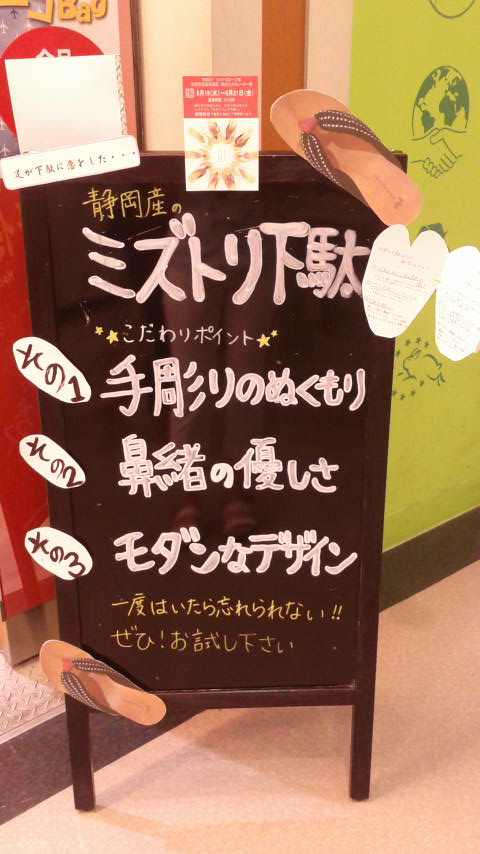 Bag
6月19日(水)~6月21日(金)
足が下駄に恋をした・・・
静岡産の
ミズトリ下駄
こだわりポイント
その1
手彫りのぬくもり
その2
鼻緒の優しさ
その3
モダンなデザイン
一度はいたら忘れられない!!
ぜひ!お試し下さい